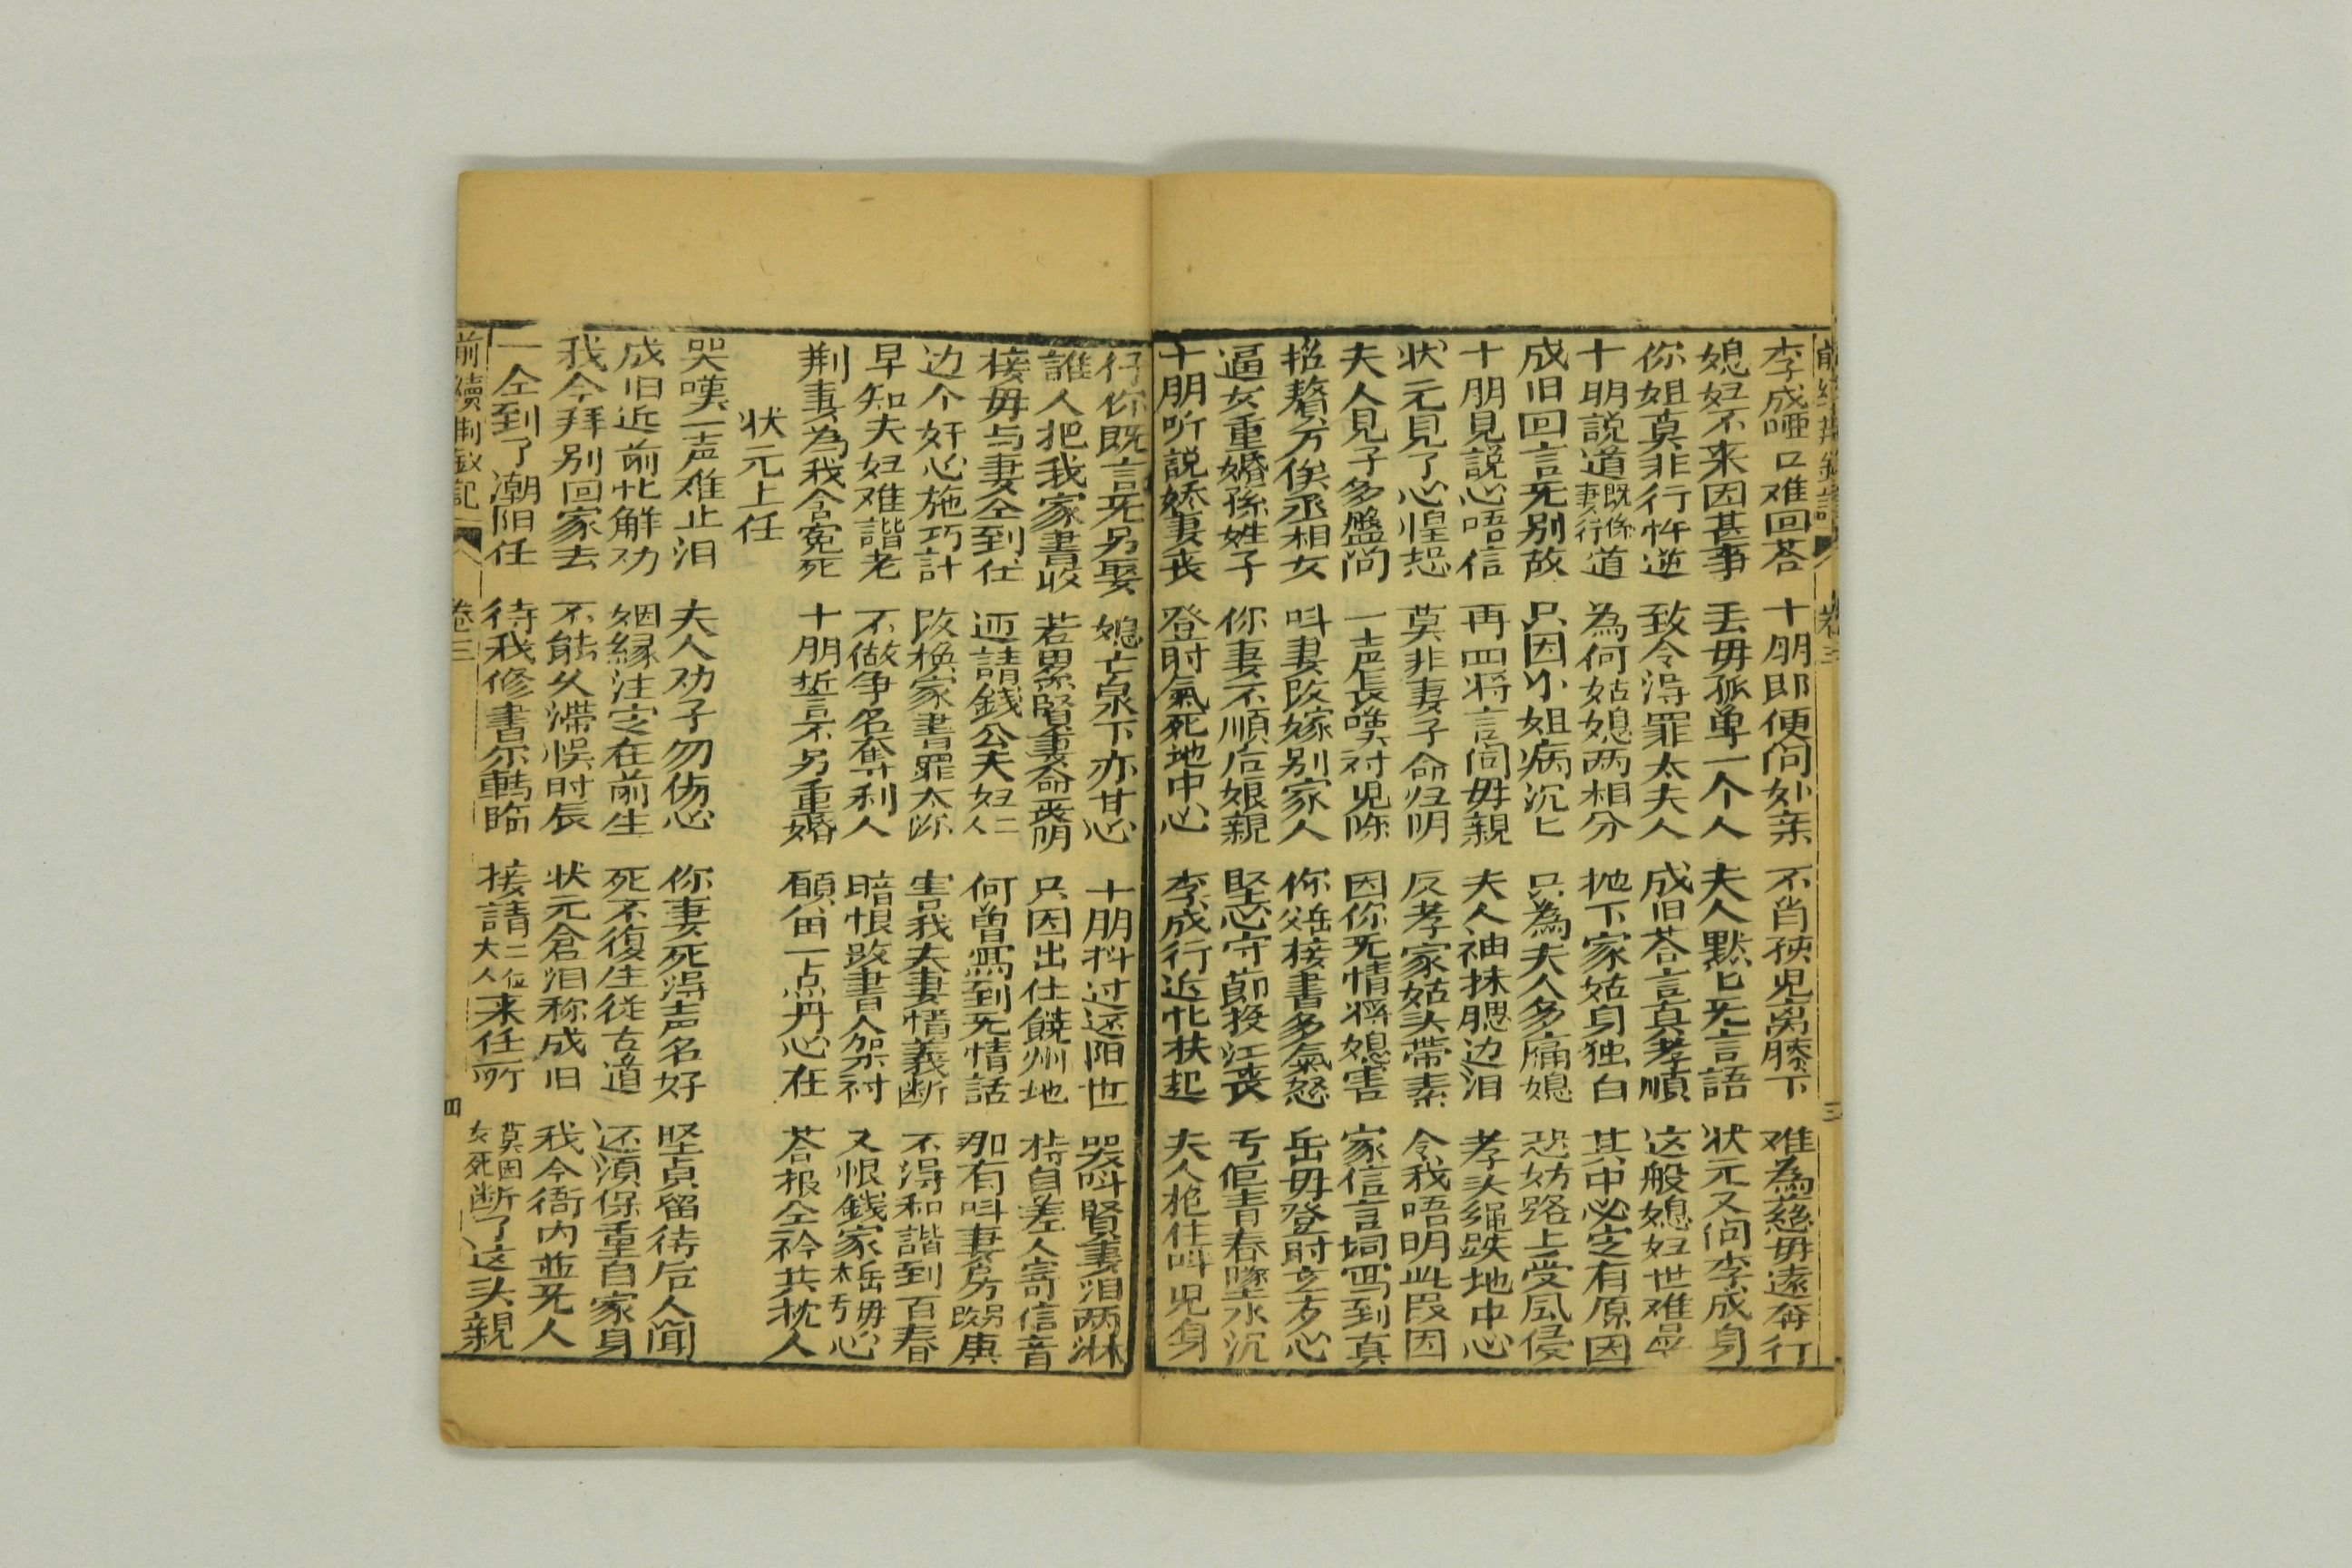 前續荊釵記 卷三 三
李成啞口难回荅 十朋即便问娘亲 不肖孩児离膝下 难為慈毋遠奔行
媳妇不来因甚事 丢毋孤单一个人 夫人黙匕旡言語 状元又问李成身
你姐莫非行忤逆 致令淂罪太夫人 成旧荅言真孝順 这般媳妇世难尋
十朋説道既係妻行道 為何姑媳两相分 抛下家姑身独自 其中必定有原因
成旧回言旡别故 只因小姐病沉匕 只為夫人多痛媳 恐妨路上受風侵
十朋見説心唔信 再四将言问毋親 夫人袖抹腮边泪 孝头绳跌地中心
状元見了心惶恐 莫非妻子命归阴 反孝家姑头帶素 令我唔明此叚因
夫人見子多盤问 一声長嘆对児陈 因你旡情将媳害 家信言词写到真
招贅万俟丞相女 叫妻改嫁别家人 你岳接書多氣怒 岳毋登时立歹心
逼女重婚孫姓子 你妻不順后娘親 堅心守莭投江喪 丐佢青春墜水沉
十朋听説嬌妻丧 登时氣死地中心 李成行近忙扶起 夫人抱住叫児身
仔你既言旡另娶 媳亡泉下亦甘心 十朋抖过还阳世 哭叫賢妻泪两淋
誰人把我家書收 若累賢妻命丧阴 只因出仕饒州地 特自差人寄信音
接毋与妻仝到任 迊請錢公夫妇二人 何曾写到旡情話 那有叫妻另嫁庚
边个奸心施巧計 改换家書罪太深 害我夫妻情義断 不淂和諧到百春
早知夫妇难諧老 不做争名奪利人 暗恨改書人架衬 又恨錢家太岳毋丐心
荆妻為我含冤死 十朋誓不另重婚 願留一点丹心在 荅报仝衿共枕人
状元上任
哭嘆一声难止泪 夫人劝子勿伤心 你妻死淂声名好 堅貞留待后人闻
成旧近前忙解劝 姻縁注定在前生 死不復生従古道 还湏保重自家身
我今拜别回家去 不能久滞悮时辰 状元含泪称成旧 我今衙内並旡人
一仝到了潮阳任 待我修書尔轉临 接請二位大人来任所 莫因女死断了这头親
前續荊釵記 卷三 四